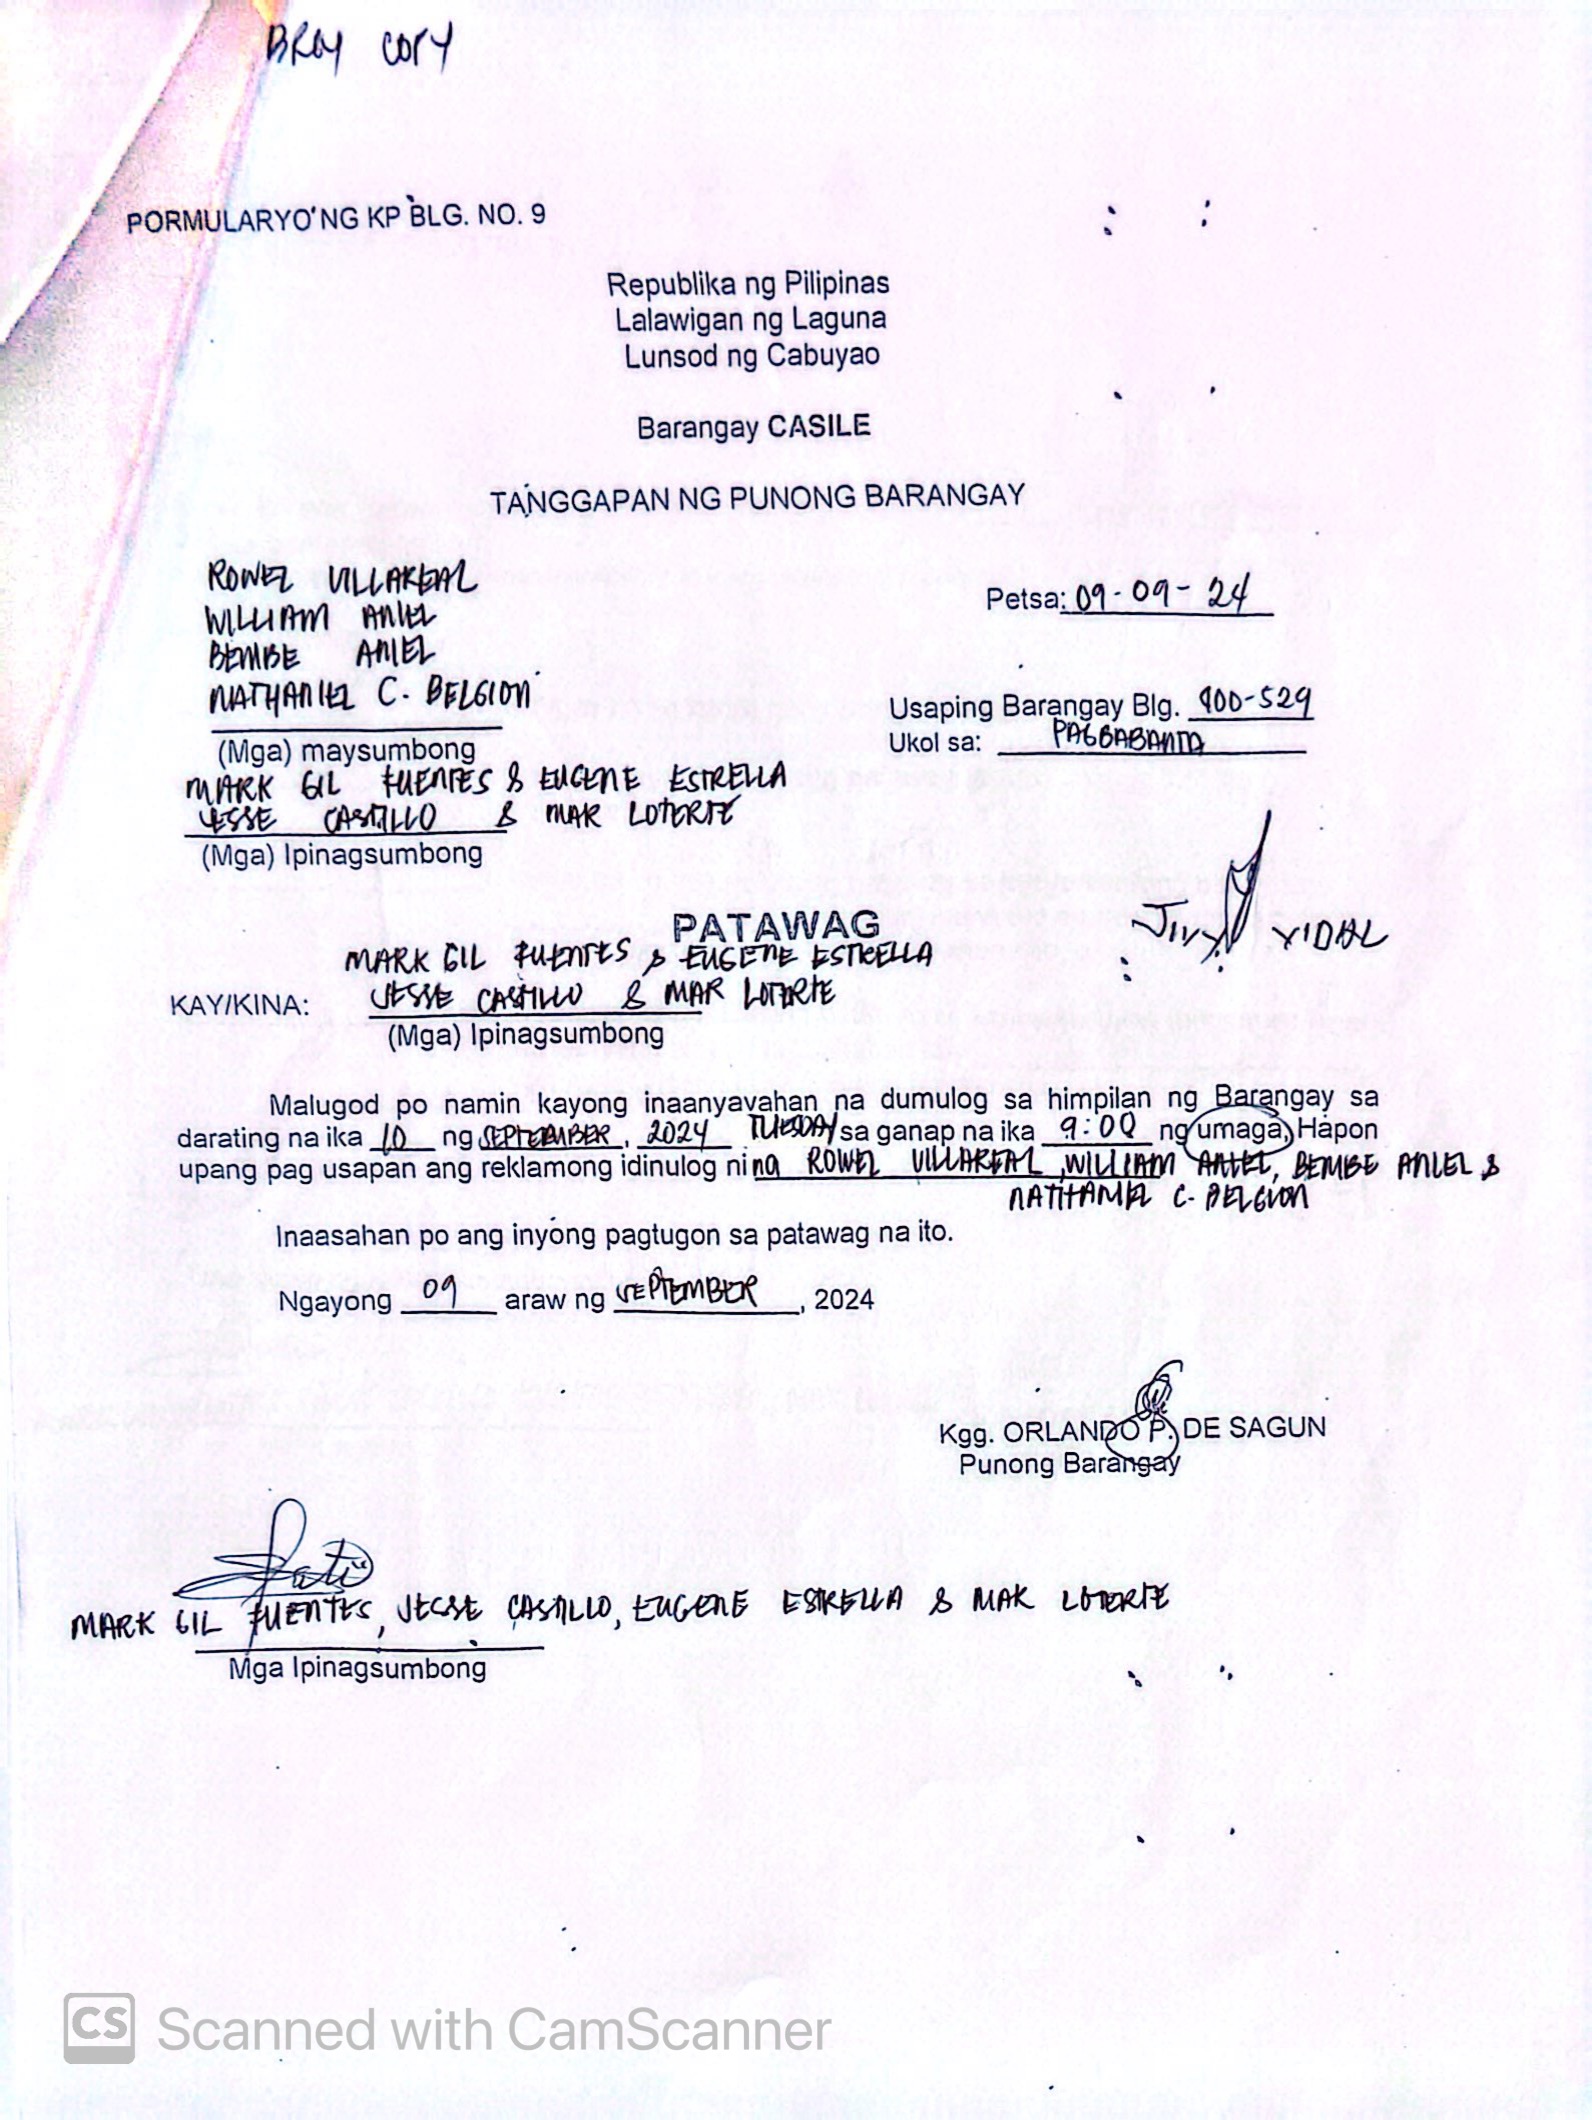 BRGY COPY
PORMULARYO NG KP BLG. NO. 9
Republika ng Pilipinas
Lalawigan ng Laguna
Lunsod ng Cabuyao
Barangay CASILE
TANGGAPAN NG PUNONG BARANGAY
ROWEL VILLAREAL
WILLIAM ANIEL
BEMBE ANIEL
NATHANIEL C. BELGION
(Mga) maysumbong
Petsa: 09-09-24
Usaping Barangay Blg. 400-529
Ukol sa: PAGBABANTA
MARK GIL FUENTES & EUGENE ESTRELLA
JESSE CASTILLO & MAR LOTERTE
(Mga) Ipinagsumbong
VIDAL
PATAWAG
MARK GIL FUENTES & EUGENE ESTRELLA
KAY/KINA: JESSE CASTILLO & MAR LOTERTE
(Mga) Ipinagsumbong
Malugod po namin kayong inaanyavahan na dumulog sa himpilan ng Barangay sa
darating na ika 10 ng SEPTEMBER, 2024 TUESDAY sa ganap na ika 9:00 ng umaga, Hapon
upang pag usapan ang reklamong idinulog ni na ROWEL VILLAREAL, WILLIAM ANIEL, BEMBE ANIEL &
NATHANIEL C. BELGION
Inaasahan po ang inyong pagtugon sa patawag na ito.
Ngayong 09 araw ng SEPTEMBER, 2024
Kgg. ORLANDO P. DE SAGUN
Punong Barangay
MARK GIL FUENTES, JESSE CASTILLO, EUGENE ESTRELLA & MAR LOTERTE
Mga Ipinagsumbong
CS Scanned with CamScanner